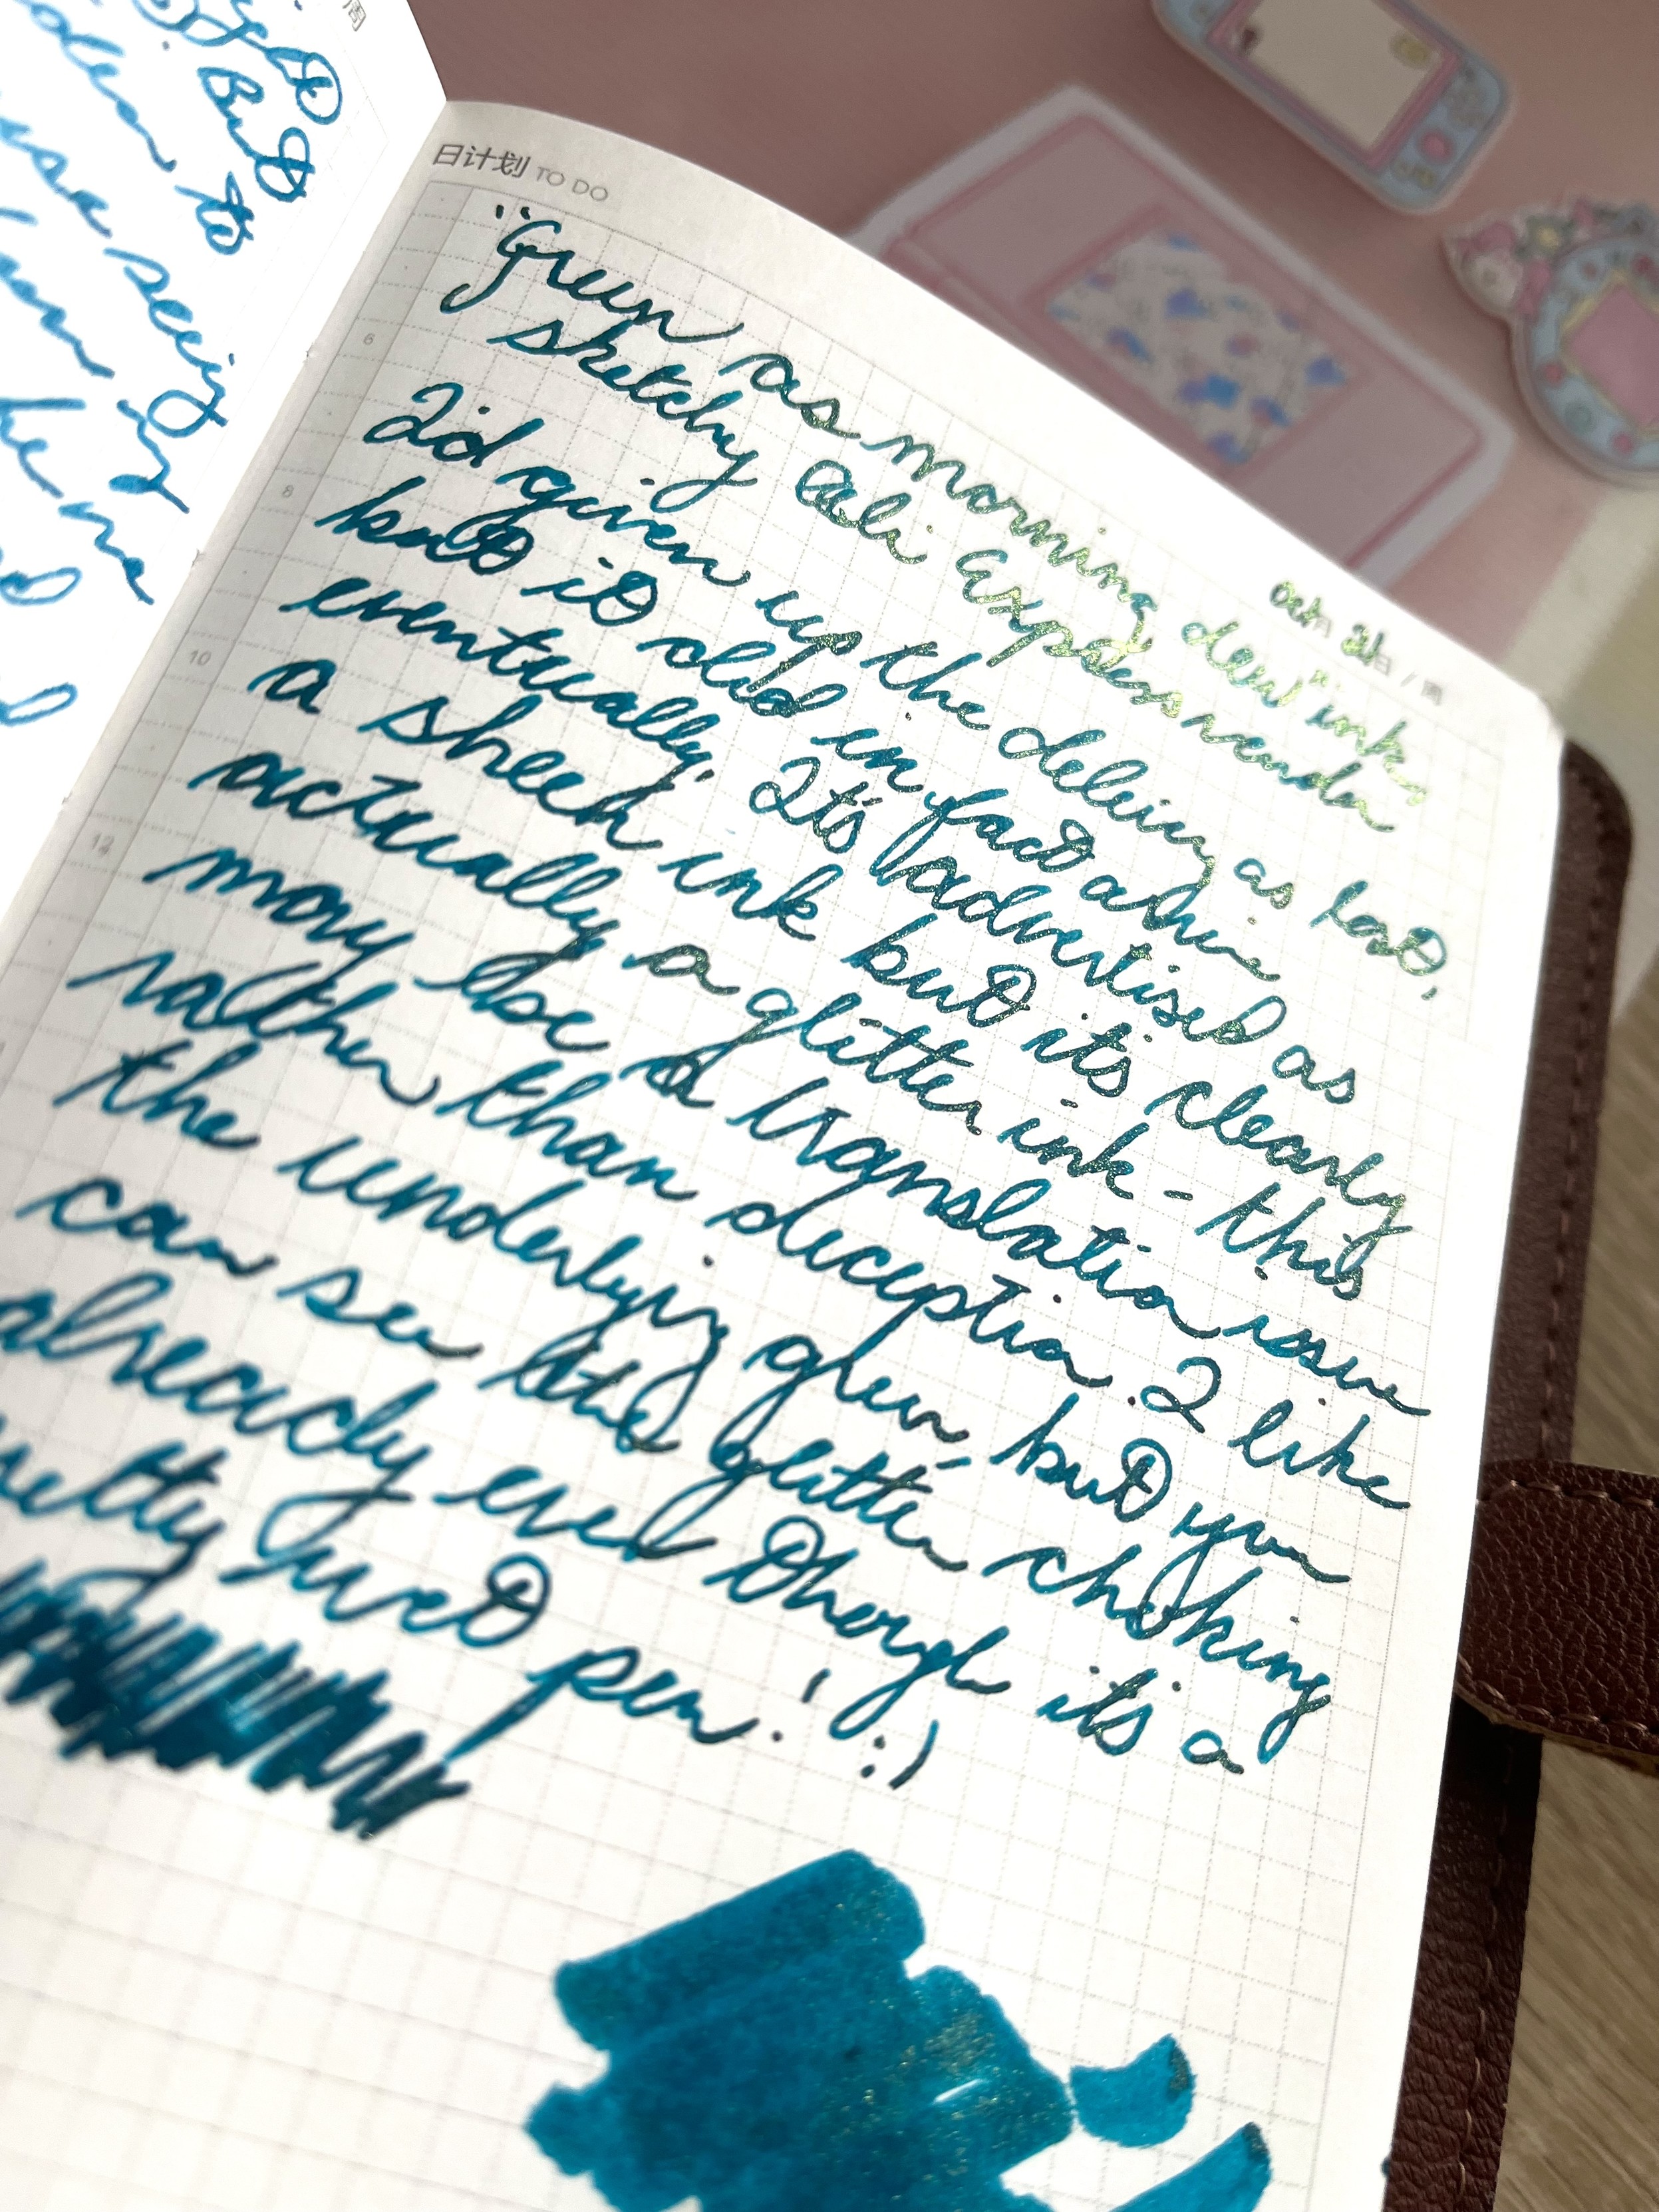 周
But
to
seeing
日计划 TO DO
Oct 21 日 / 周
"Green as morning dew" ink,
sketchy Ali Express vendor
I'd given up the delivery as lost,
but it did in fact arrive
eventually. It's advertised as
a sheen ink but it's clearly
actually a glitter ink - this
may be a translation issue
rather than deception. I like
the underlying green, but you
can see the glitter choking
already even though it's a
pretty wet pen! :)
6
8
10
12